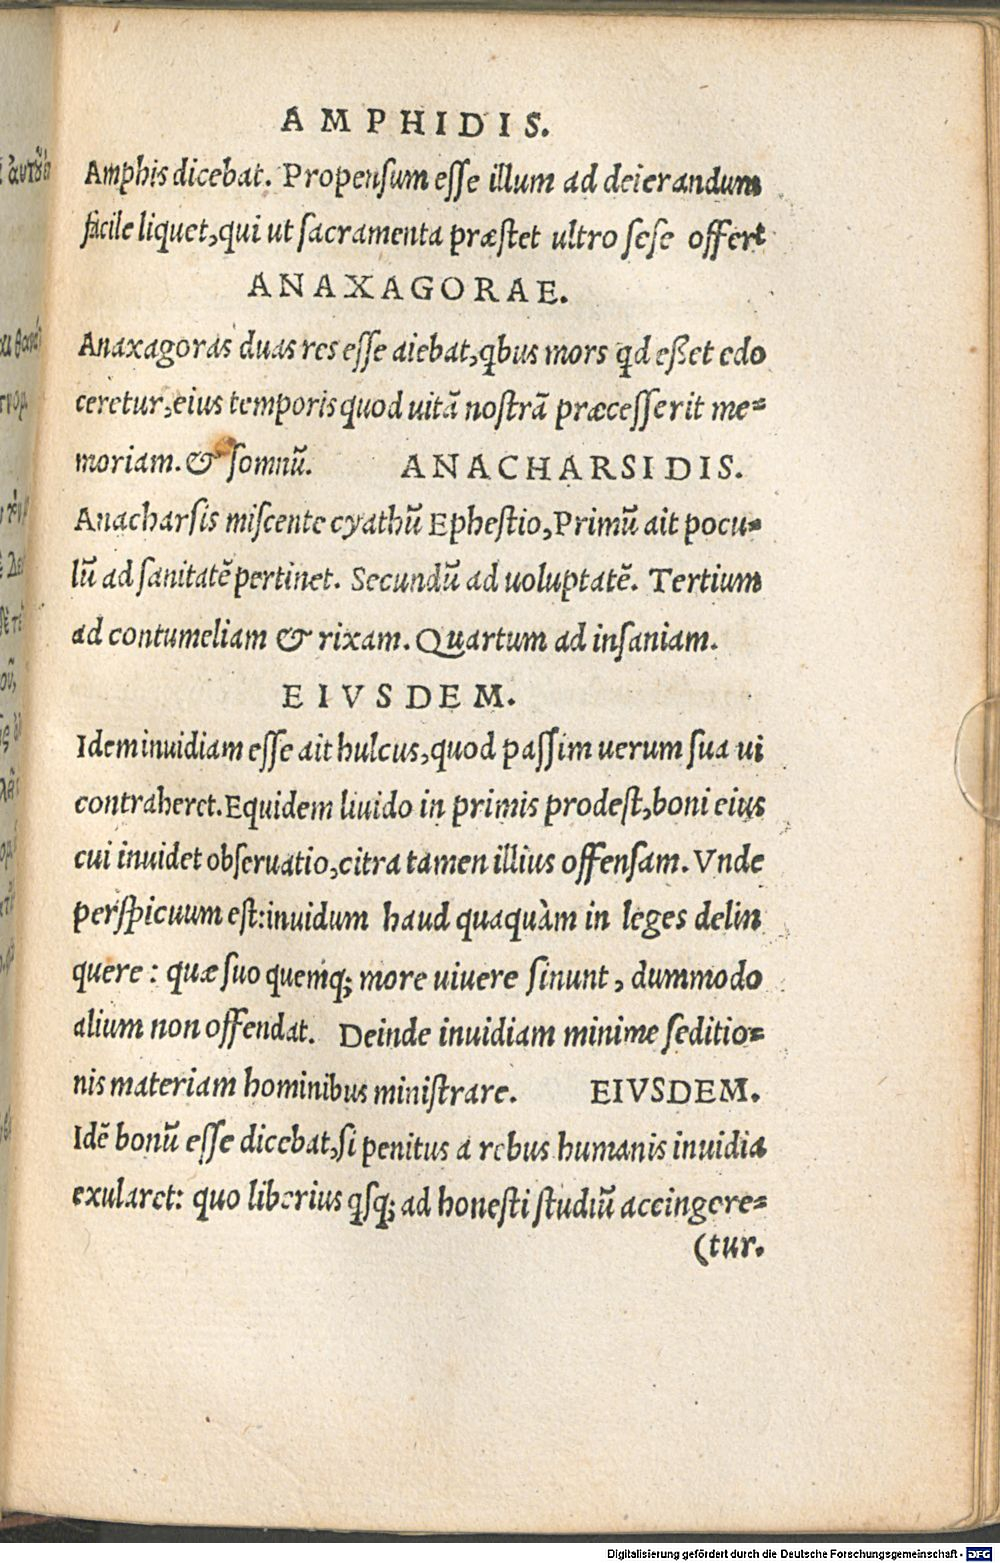 AMPHIDIS.
Amphis dicebat. Propensum esse illum ad deierandum
facile liquet, qui ut sacramenta præstet ultro sese offert
ANAXAGORAE.
Anaxagoras duas res esse aiebat, qbus mors qd eßet edo
ceretur, eius temporis quod uitā nostrā præcesserit me=
moriam. & somnū. ANACHARSIDIS.
Anacharsis miscente cyathū Ephestio, Primū ait pocu=
lū ad sanitatē pertinet. Secundū ad uoluptatē. Tertium
ad contumeliam & rixam. Quartum ad insaniam.
EIVSDEM.
Idem inuidiam esse ait hulcus, quod passim uerum sua ui
contraheret. Equidem liuido in primis prodest, boni eius
cui inuidet obseruatio, citra tamen illius offensam. Vnde
perspicuum est: inuidum haud quaquàm in leges delin
quere: quæ suo quemq; more uiuere sinunt, dummodo
alium non offendat. Deinde inuidiam minime seditio=
nis materiam hominibus ministrare. EIVSDEM.
Idē bonū esse dicebat, si penitus a rebus humanis inuidia
exularet: quo liberius qsq; ad honesti studiū accingere=
(tur.
Digitalisierung gefördert durch die Deutsche Forschungsgemeinschaft - DFG